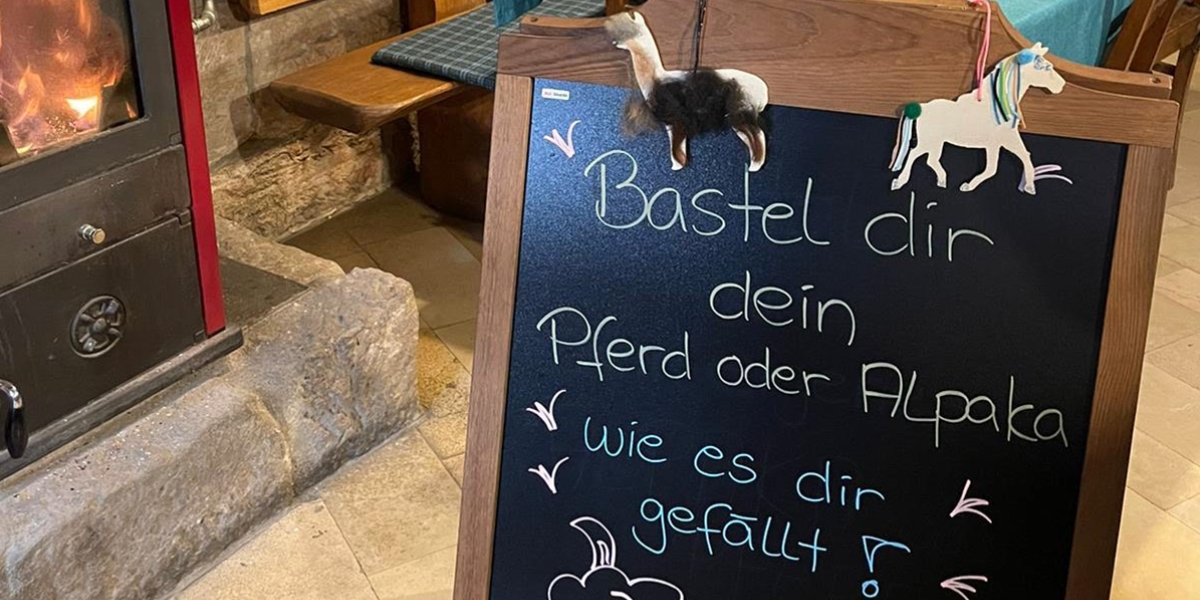 Bastel dir
dein
Pferd oder Alpaka
wie es dir
gefällt!